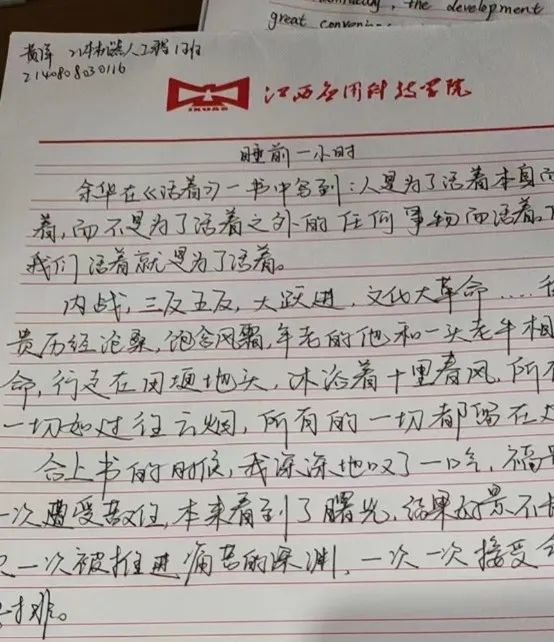 the development
great
黄泽 21机器人工程1班
2140808030116
JXUAS
江西应用科技学院
睡前一小时
余华在《活着》一书中写到:人是为了活着本身而
着,而不是为了活着之外的任何事物而活着。
我们活着就是为了活着。
内战,三反五反,大跃进,文化大革命……
贵历经沧桑,饱含风霜,年老的他和一头老牛相
命,行走在田埂地头,沐浴着十里春风,所有
一切如过往云烟,所有的一切都留在
合上书的时候,我深深地叹了一口气,福贵
一次遭受敌住,本来看到了曙光,结果好景不
又一次被推进痛苦的深渊,一次一次接受
难。